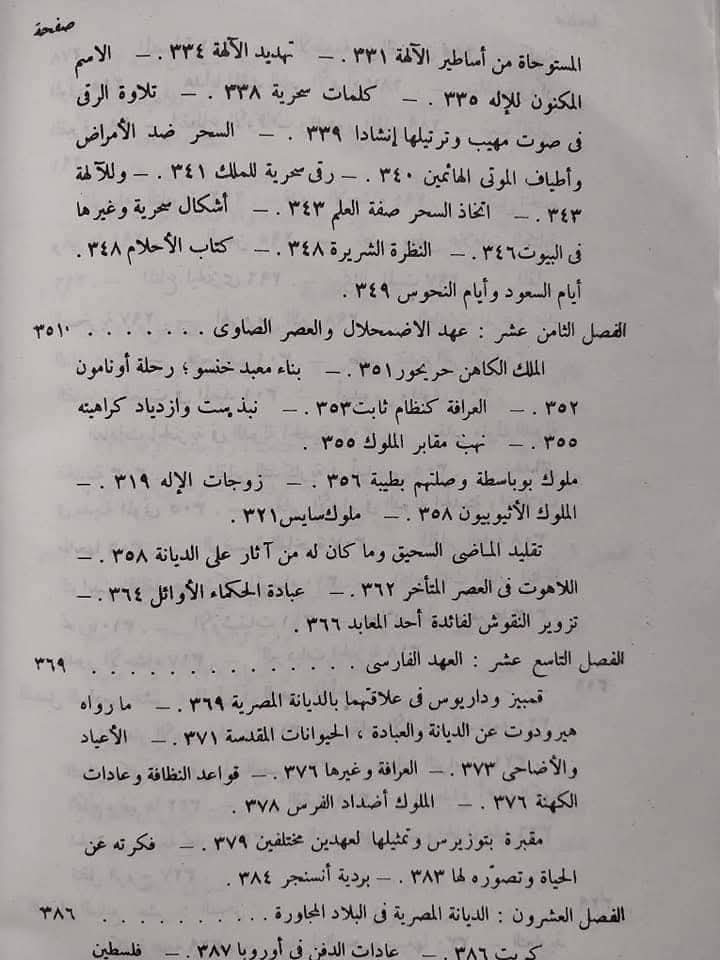 صفحة
المستوحاة من أساطير الآلهة ٣٣١ . — تهديد الآلهة ٣٣٤ . — الاسم
المكنون للإله ٣٣٥ . — كلمات سحرية ٣٣٨ . — تلاوة الرقى
فى صوت مهيب وترتيلها إنشادا ٣٣٩ . — السحر ضد الأمراض
وأطياف الموتى الهائمين ٣٤٠ . — رقى سحرية للملك ٣٤١ . — وللآلهة
٣٤٣ . — اتخاذ السحر صفة العلم ٣٤٣ . — أشكال سحرية وغيرها
فى البيوت ٣٤٦ . — النظرة الشريرة ٣٤٨ . — كتاب الأحلام ٣٤٨ .
أيام السعود وأيام النحوس ٣٤٩ .
الفصل الثامن عشر : عهد الاضمحلال والعصر الصاوى . . . . . . . ٣٥١
الملك الكاهن حريحور ٣٥١ . — بناء معبد خنسو ؛ رحلة أونامون
٣٥٢ . — العرافة كنظام ثابت ٣٥٣ . — نبذ ست وازدياد كراهيته
٣٥٥ . — نهب مقابر الملوك ٣٥٥ .
ملوك بوباسطة وصلتهم بطيبة ٣٥٦ . — زوجات الإله ٣١٩ . —
الملوك الأثيوبيون ٣٥٨ . — ملوك سايس ٣٢١ .
تقليد الماضى السحيق وما كان له من آثار على الديانة ٣٥٨ . —
اللاهوت فى العصر المتأخر ٣٦٢ . — عبادة الحكماء الأوائل ٣٦٤ . —
تزوير النقوش لفائدة أحد المعابد ٣٦٦ .
الفصل التاسع عشر : العهد الفارسى . . . . . . . . . . . . . . ٣٦٩
قمبيز وداريوس فى علاقتهما بالديانة المصرية ٣٦٩ . — ما رواه
هيرودوت عن الديانة والعبادة ، الحيوانات المقدسة ٣٧١ . — الأعياد
والأضاحى ٣٧٣ . — العرافة وغيرها ٣٧٦ . — قواعد النظافة وعادات
الكهنة ٣٧٦ . — الملوك أضداد الفرس ٣٧٨ .
مقبرة بتوزيرس وتمثيلها لعهدين مختلفين ٣٧٩ . — فكرته عن
الحياة وتصوّره لها ٣٨٣ . — بردية أنسنجر ٣٨٤ .
الفصل العشرون : الديانة المصرية فى البلاد المجاورة . . . . . . . . . ٣٨٦
كريت ٣٨٦ . — عادات الدفن فى أوروبا ٣٨٧ . — فلسطين